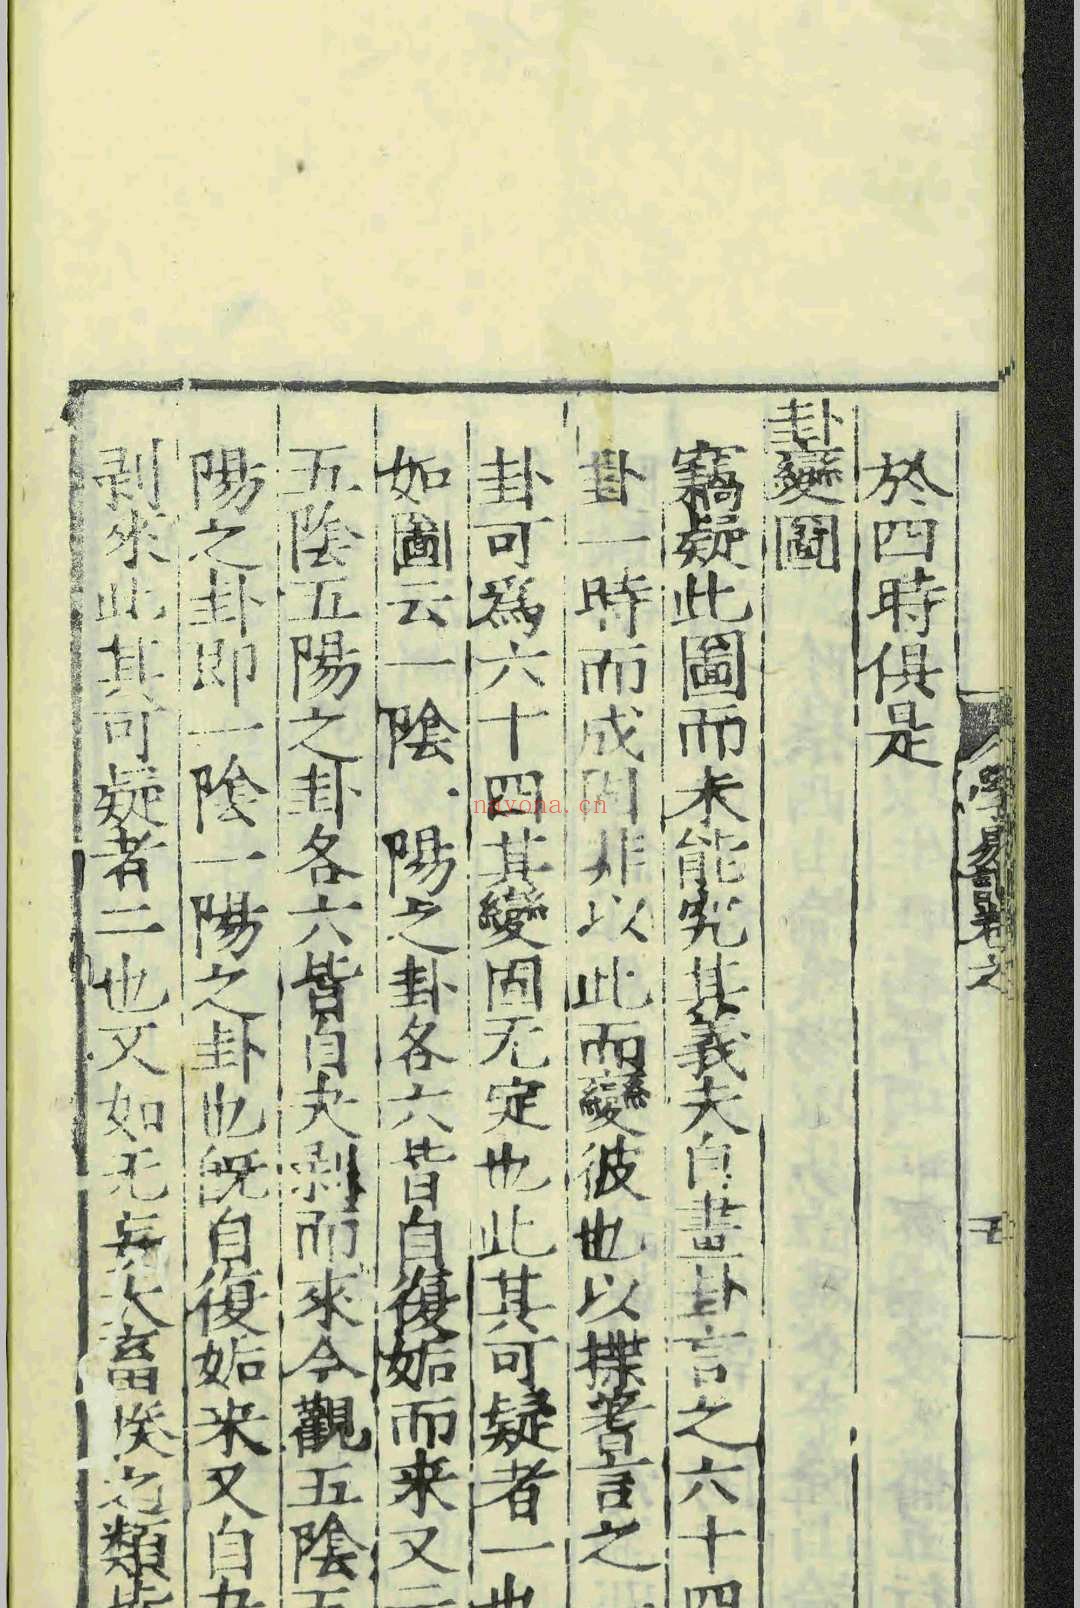 於四時俱是
卦變圖
竊疑此圖而未能究其義夫自畫卦言之六十四
卦一時而成固非以此而變彼也以揲蓍言之
卦可爲六十四其變固无定也此其可疑者一也
如圖云一陰 陽之卦各六皆自復姤而来又云
五陰五陽之卦各六皆自夬剥而來今觀五陰五
陽之卦即一陰一陽之卦也旣自復姤来又自夬
剥來此其可疑者二也又如无妄大畜睽之類皆
學易記卷之
五
nayona.cn